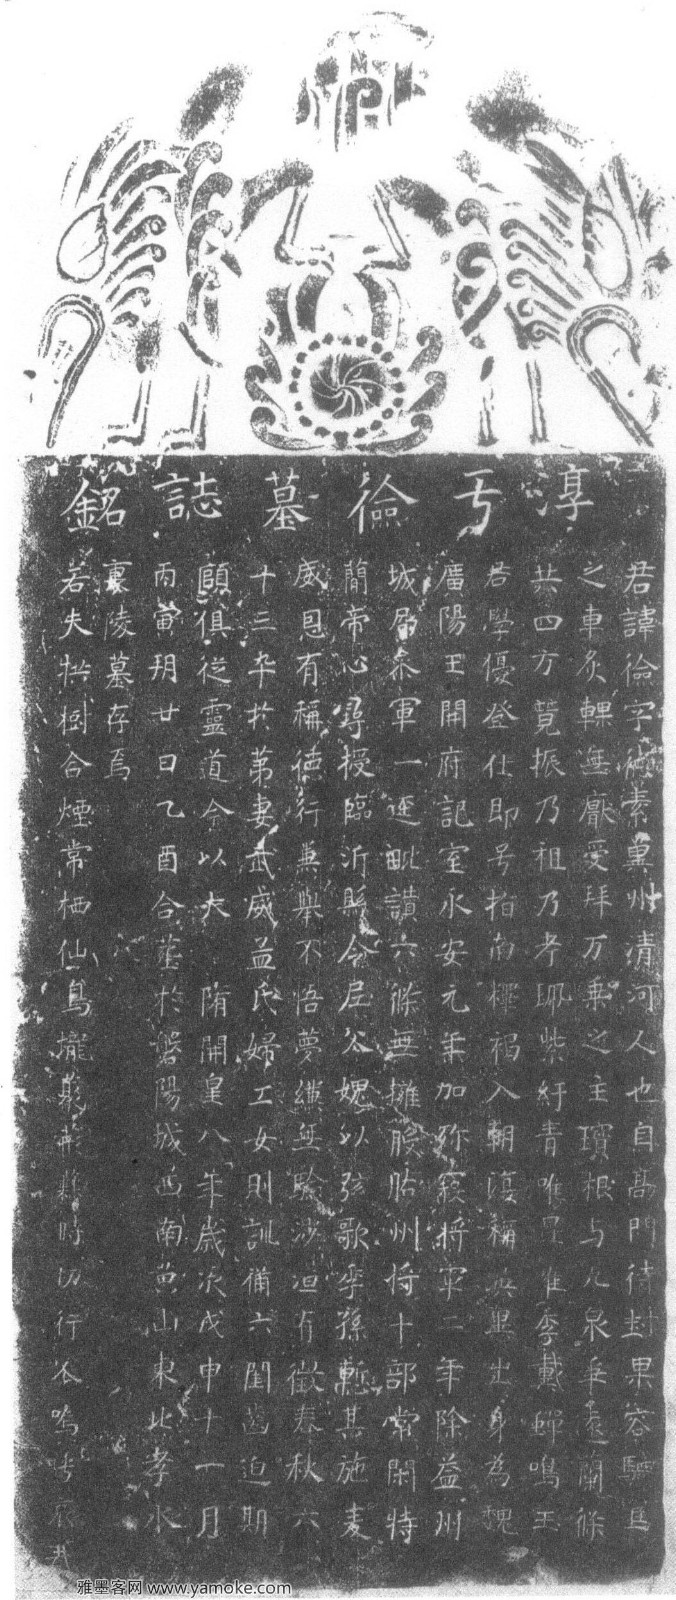 淳于儉墓誌銘
君諱儉字德素冀州清河人也自高門待封果容駟馬
之車炙輠無窮受拜万乘之主瓌根与九泉爭遠蘭條
共四方競振乃祖乃考珮紫紆青唯昆唯季戴蟬鳴玉
君學優登仕即号指南釋褐入朝復稱出身為魏
廣陽王開府記室永安元年加殄寇將軍二年除益州
城局參軍一逕毗讚六條無擁朘胳州倚十部常閑特
簡帝心尋授臨沂縣令屈父媿以弦歌季孫慙其施麦
威恩有稱德行兼舉不悟夢縑無驗涉洹有徵春秋六
十三卒於第妻武威孟氏婦工女則訓備六閨齒迫期
頤俱從靈道今以大隋開皇八年歲次戊申十一月
丙寅朔廿日乙酉合葬於磐陽城西南黄山東北孝水
裏陵墓存焉
若夫栱樹合煙常栖仙鳥時切行嗚呼哀哉
雅墨客网 www.yamoke.com